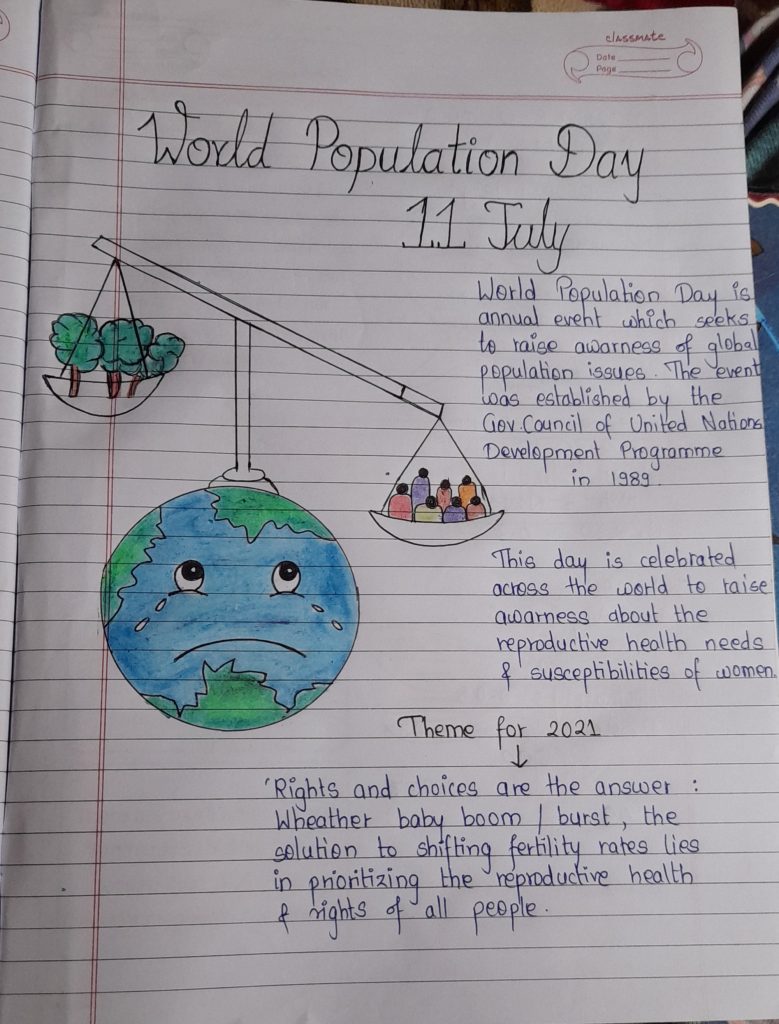 classmate
Date
Page
World Population Day
11 July
World Population Day is
annual event which seeks
to raise awarness of global
population issues. The event
was established by the
Gov.Council of United Nations
Development Programme
in 1989.
This day is celebrated
across the world to raise
awarness about the
reproductive health needs
& susceptibilities of women.
Theme for 2021
↓
'Rights and choices are the answer :
Wheather baby boom / burst, the
solution to shifting fertility rates lies
in prioritizing the reproductive health
& rights of all people.